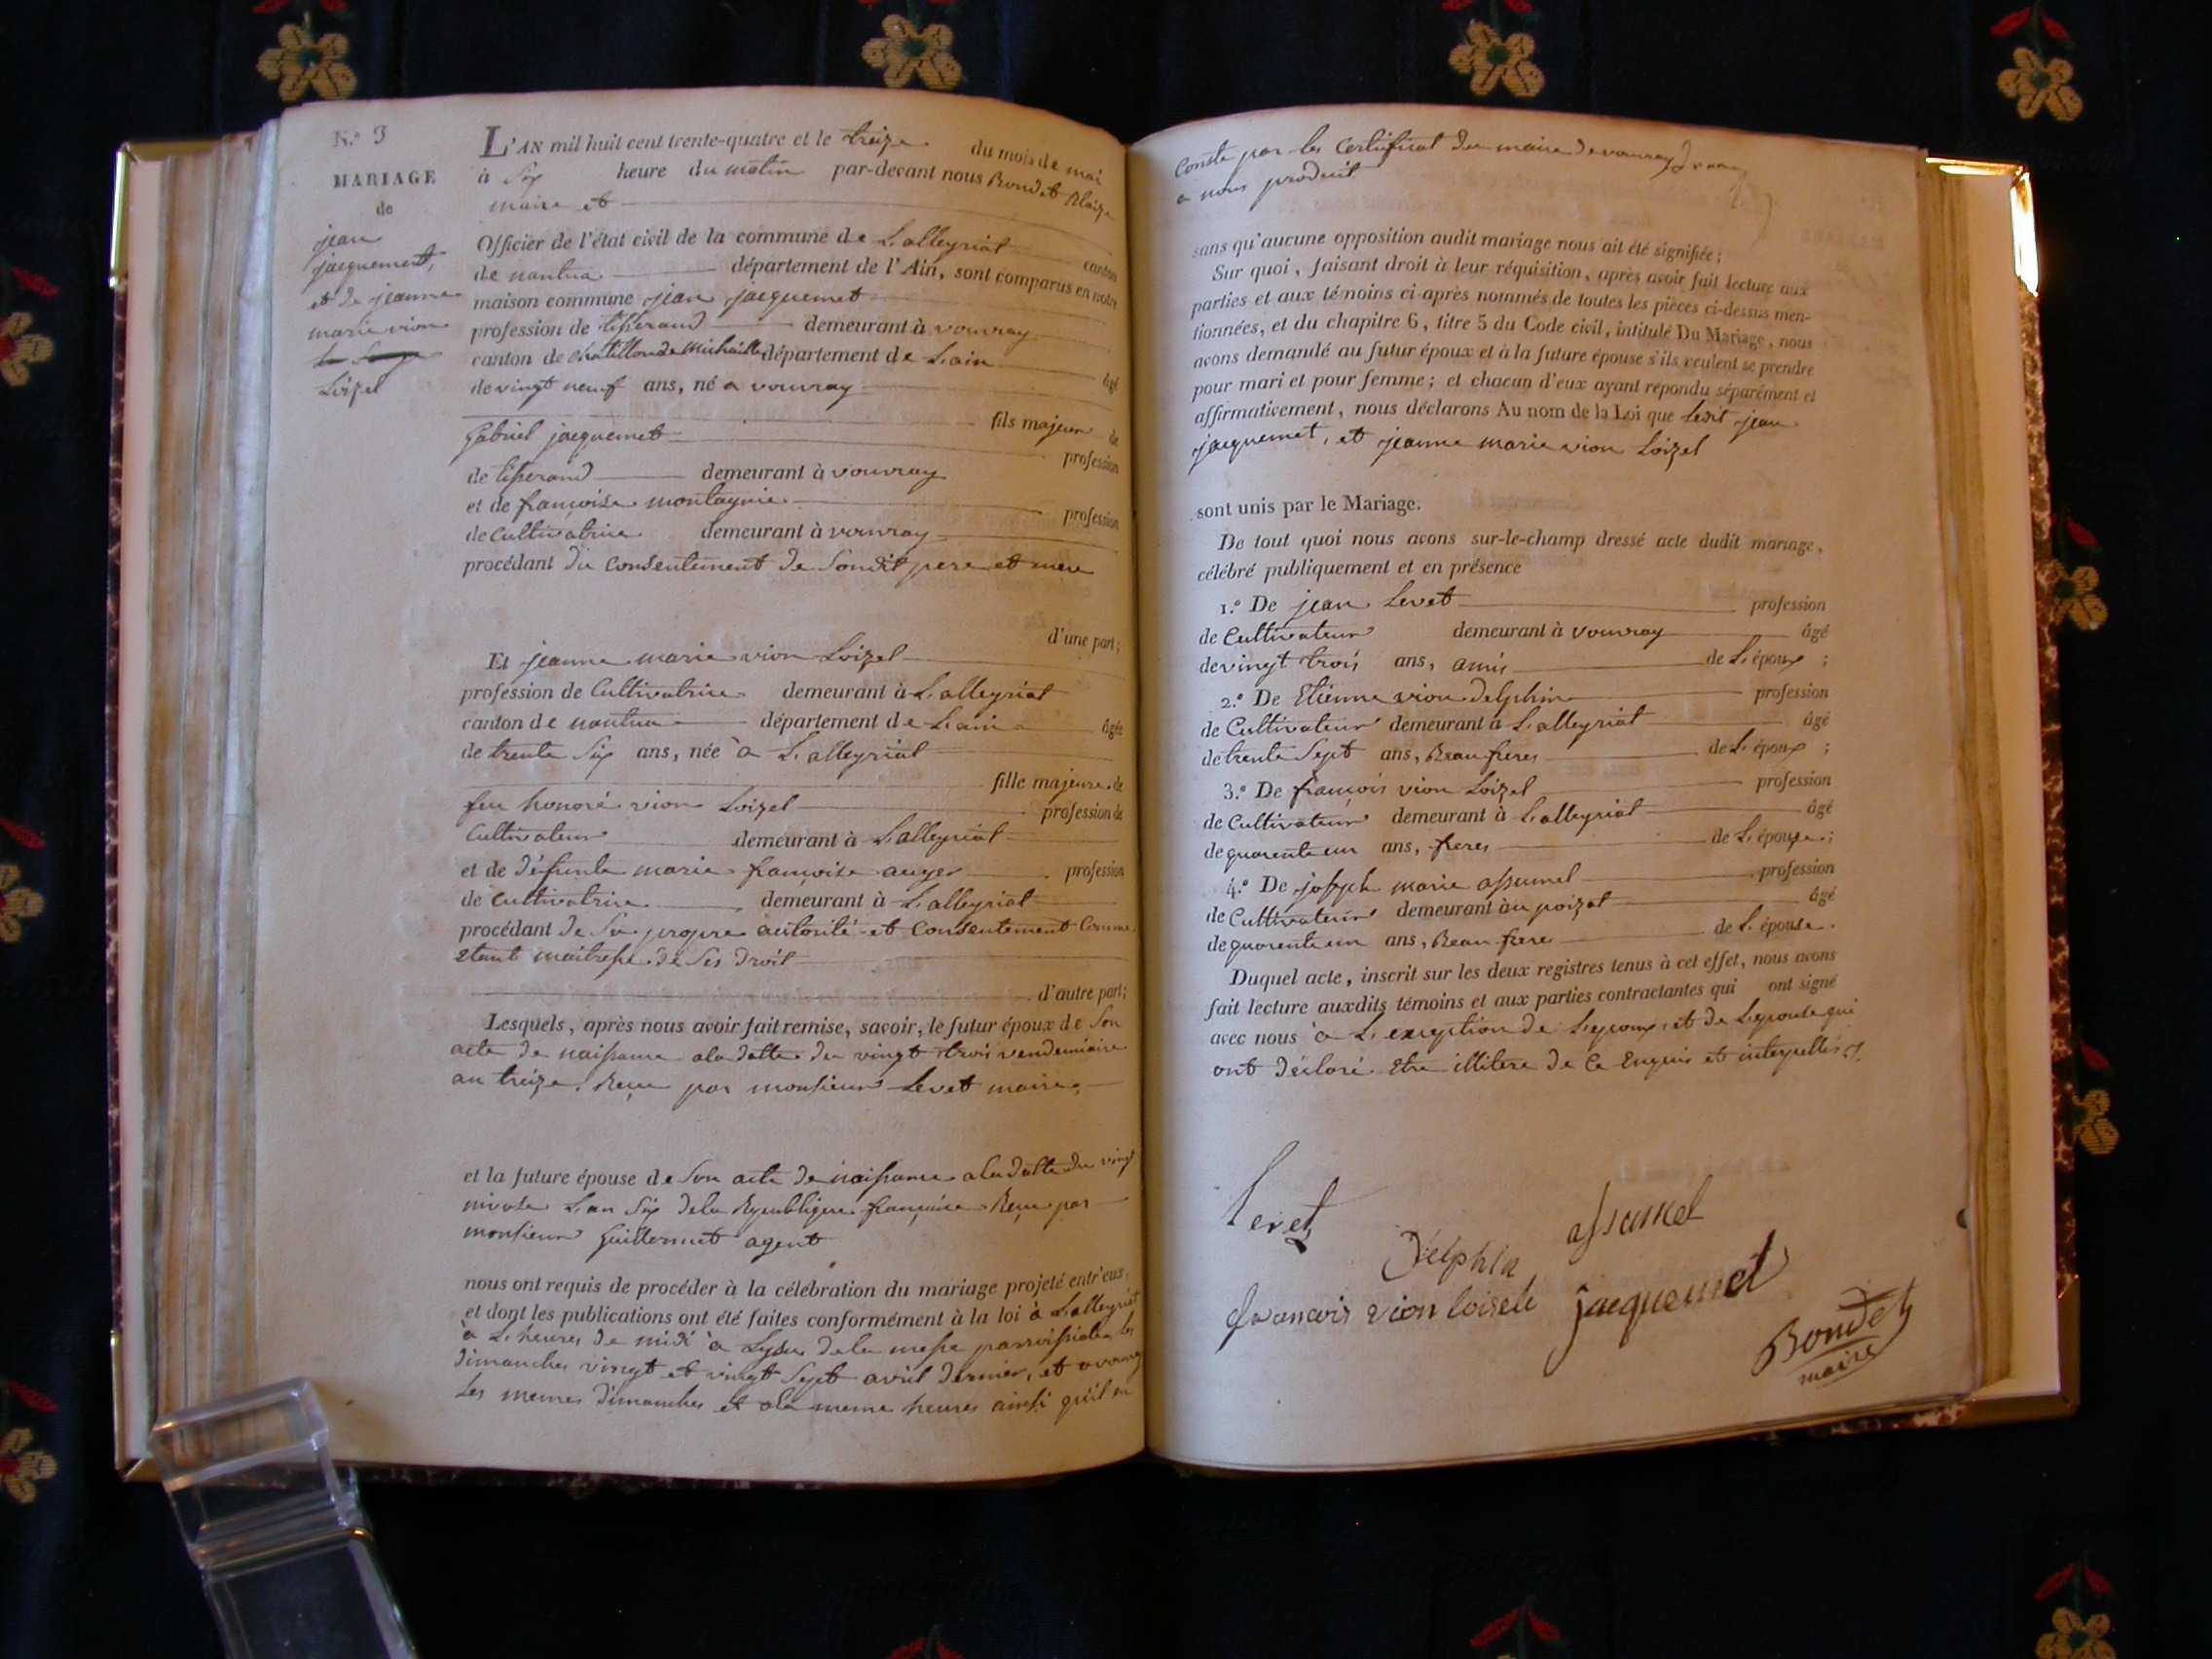 N.o 3
MARIAGE
de
jean
jacquemet,
et de jeanne
marie vion
Loizel
L'AN mil huit cent trente-quatre et le treize du mois de mai
à Six heure du matin par-devant nous Bondet Blaize
maire et
Officier de l'état civil de la commune de L'alleyriat canton
de nantua département de l'Ain, sont comparus en notre
maison commune jean jacquemet
profession de tisserand demeurant à vouvray
canton de chatillon de Michaille département de L'ain âgé
de vingt neuf ans, né a vouvray
fils majeur de
Gabriel jacquemet profession
de tisserand demeurant à vouvray
et de françoise montagnie profession
de cultivatrice demeurant à vouvray
procédant du consentement de Sondit pere et mere
d'une part;
Et jeanne marie vion Loizel
profession de Cultivatrice demeurant à L'alleyriat
canton de nantua département de L'ain âgée
de trente Six ans, née à L'alleyriat
fille majeure de
feu honoré vion Loizel profession de
Cultivateur demeurant à L'alleyriat
et de défunte marie françoise auger profession
de cultivatrice demeurant à L'alleyriat
procédant de Sa propre autorité et Consentement Comme
etant maitresse de Ses droit
d'autre part;
Lesquels, après nous avoir fait remise, savoir, le futur époux de Son
acte de naissance a la datte du vingt trois vendemiaire
an treize. Reçu par monsieur Levet maire,
et la future épouse de Son acte de naissance a la datte du vingt
nivose L'an Six de la Republique françaice Reçu par
monsieur Guillermet agent
nous ont requis de procéder à la célébration du mariage projeté entr'eux,
et dont les publications ont été faites conformément à la loi à L'alleyriat
à L'heures de midi à Lyssu de la messe parroissiale les
dimanches vingt et vingt Sept avril dernier, et a vouvray
Les memes dimanches et a la meme heures ainsi qu'il en
Conste par les Certificat du maire de vouvray
a nous produit
sans qu'aucune opposition audit mariage nous ait été signifiée;
Sur quoi, faisant droit à leur réquisition, après avoir fait lecture aux
parties et aux témoins ci-après nommés de toutes les pièces ci-dessus men-
tionnées, et du chapitre 6, titre 5 du Code civil, intitulé Du Mariage, nous
avons demandé au futur époux et à la future épouse s'ils veulent se prendre
pour mari et pour femme; et chacun d'eux ayant répondu séparément et
affirmativement, nous déclarons Au nom de la Loi que Ledit jean
jacquemet, et jeanne marie vion Loizel
sont unis par le Mariage.
De tout quoi nous avons sur-le-champ dressé acte dudit mariage,
célébré publiquement et en présence
1.° De jean Levet profession
de Cultivateur demeurant à vouvray âgé
de vingt trois ans, amis de L'époux ;
2.° De Etienne vion delphin profession
de Cultivateur demeurant à L'alleyriat âgé
de trente Sept ans, Beau freres de L'époux ;
3.° De françois vion Loizel profession
de Cultivateur demeurant à L'alleyriat âgé
de quarente un ans, freres de L'épouse;
4.° De joseph marie assumel profession
de Cultivateur demeurant au poizat âgé
de quarente un ans, Beau frere de L'épouse.
Duquel acte, inscrit sur les deux registres tenus à cet effet, nous avons
fait lecture auxdits témoins et aux parties contractantes qui ont signé
avec nous à L'exception de L'epoux et de L'epouse qui
ont déclaré Etre illitere de Ce Enquis et interpellés
Levet
Delphin assumel
francois vion loisele jacquemet
Bondet
maire